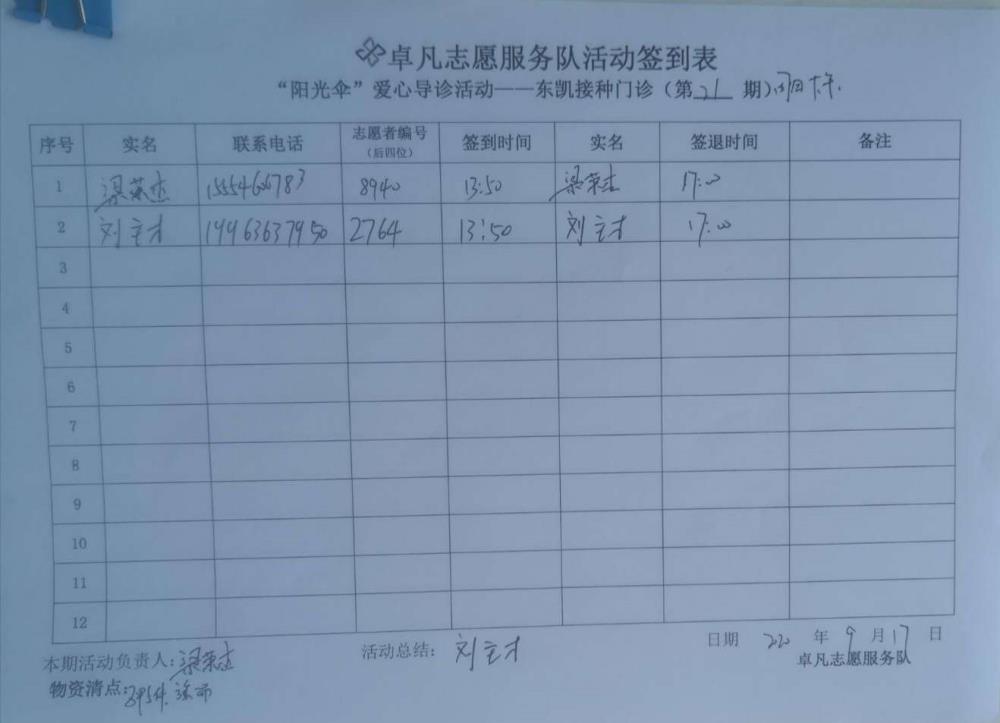 卓凡志愿服务队活动签到表
“阳光伞”爱心导诊活动——东凯接种门诊（第 21 期）
序号 实名 联系电话 志愿者编号（后四位） 签到时间 实名 签退时间 备注
1 梁荣杰 8940 13:50 梁荣杰 17:00
2 刘主才 2764 13:50 刘主才 17:00
3
4
5
6
7
8
9
10
11
12
本期活动负责人：梁荣杰 活动总结： 刘主才 日期 年 9 月 17 日
卓凡志愿服务队
物资清点：